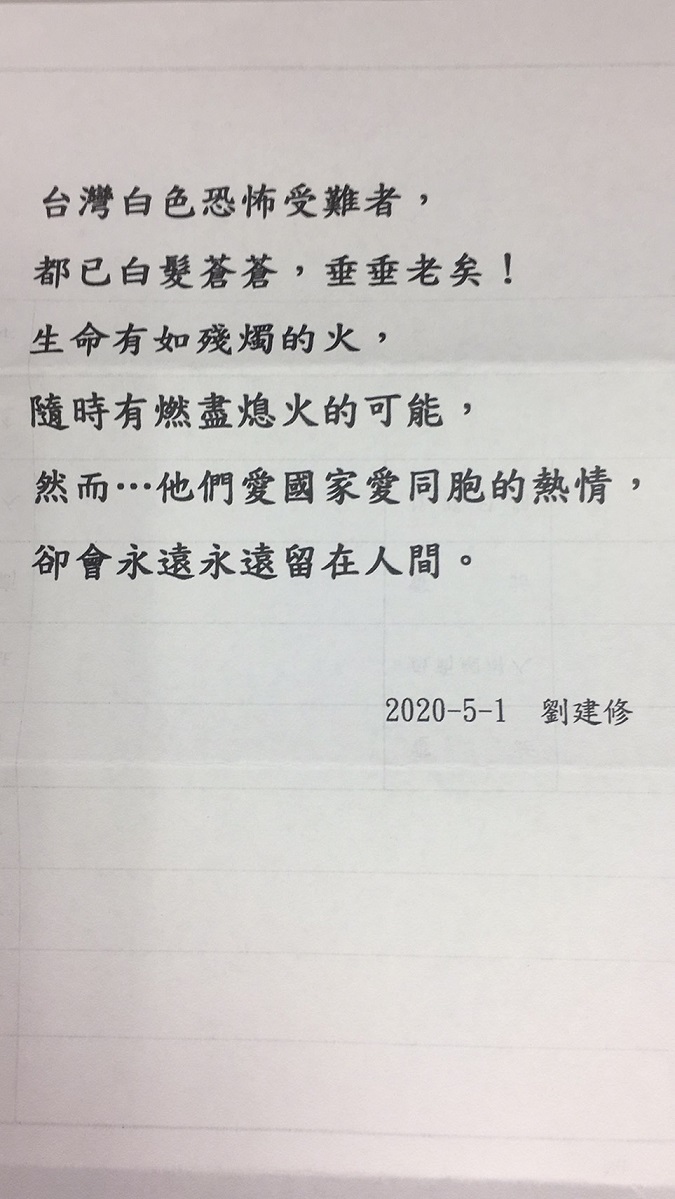 台灣白色恐怖受難者，
都已白髮蒼蒼，垂垂老矣！
生命有如殘燭的火，
隨時有燃盡熄火的可能，
然而…他們愛國家愛同胞的熱情，
卻會永遠永遠留在人間。
2020-5-1　劉建修